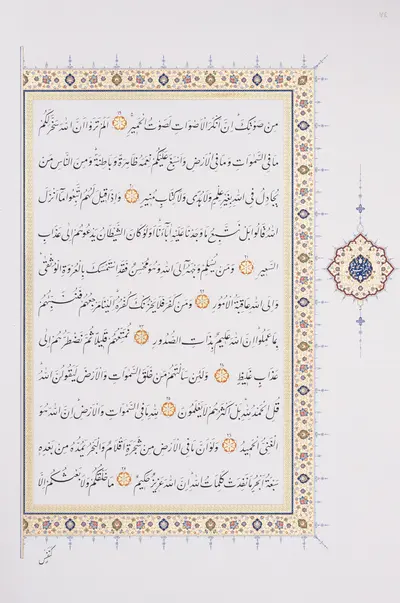 مِنْ صَوْتِكَ إِنَّ أَنْكَرَ الْأَصْوَاتِ لَصَوْتُ الْحَمِيرِ أَلَمْ تَرَوْا أَنَّ اللّٰهَ سَخَّرَ لَكُمْ
مَا فِي السَّمٰوَاتِ وَمَا فِي الْأَرْضِ وَأَسْبَغَ عَلَيْكُمْ نِعَمَهُ ظَاهِرَةً وَبَاطِنَةً وَمِنَ النَّاسِ مَنْ
يُجَادِلُ فِي اللّٰهِ بِغَيْرِ عِلْمٍ وَلَا هُدًى وَلَا كِتَابٍ مُنِيرٍ وَإِذَا قِيلَ لَهُمُ اتَّبِعُوا مَا أَنْزَلَ
اللّٰهُ قَالُوا بَلْ نَتَّبِعُ مَا وَجَدْنَا عَلَيْهِ آبَاءَنَا أَوَلَوْ كَانَ الشَّيْطَانُ يَدْعُوهُمْ إِلَى عَذَابِ
السَّعِيرِ وَمَنْ يُسْلِمْ وَجْهَهُ إِلَى اللّٰهِ وَهُوَ مُحْسِنٌ فَقَدِ اسْتَمْسَكَ بِالْعُرْوَةِ الْوُثْقَى
وَإِلَى اللّٰهِ عَاقِبَةُ الْأُمُورِ وَمَنْ كَفَرَ فَلَا يَحْزُنْكَ كُفْرُهُ إِلَيْنَا مَرْجِعُهُمْ فَنُنَبِّئُهُمْ
بِمَا عَمِلُوا إِنَّ اللّٰهَ عَلِيمٌ بِذَاتِ الصُّدُورِ نُمَتِّعُهُمْ قَلِيلًا ثُمَّ نَضْطَرُّهُمْ إِلَى
عَذَابٍ غَلِيظٍ وَلَئِنْ سَأَلْتَهُمْ مَنْ خَلَقَ السَّمٰوَاتِ وَالْأَرْضَ لَيَقُولُنَّ اللّٰهُ
قُلِ الْحَمْدُ لِلّٰهِ بَلْ أَكْثَرُهُمْ لَا يَعْلَمُونَ لِلّٰهِ مَا فِي السَّمٰوَاتِ وَالْأَرْضِ إِنَّ اللّٰهَ هُوَ
الْغَنِيُّ الْحَمِيدُ وَلَوْ أَنَّ مَا فِي الْأَرْضِ مِنْ شَجَرَةٍ أَقْلَامٌ وَالْبَحْرُ يَمُدُّهُ مِنْ بَعْدِهِ
سَبْعَةُ أَبْحُرٍ مَا نَفِدَتْ كَلِمَاتُ اللّٰهِ إِنَّ اللّٰهَ عَزِيزٌ حَكِيمٌ مَا خَلْقُكُمْ وَلَا بَعْثُكُمْ إِلَّا
كَنَفْسٍ